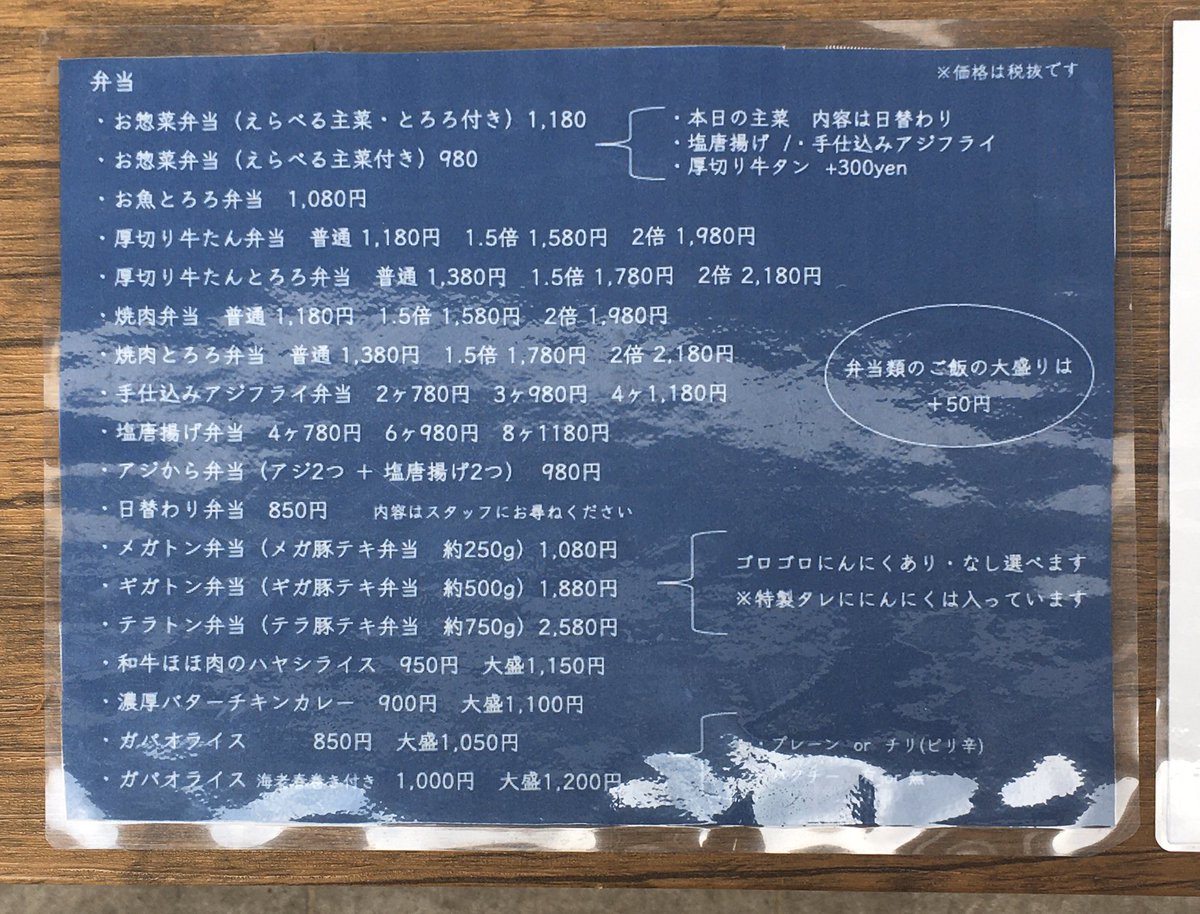 弁当
※価格は税抜です
・お惣菜弁当（えらべる主菜・とろろ付き）1,180
・お惣菜弁当（えらべる主菜付き）980
・本日の主菜　内容は日替わり
・塩唐揚げ /・手仕込みアジフライ
・厚切り牛タン +300yen
・お魚とろろ弁当　1,080円
・厚切り牛たん弁当　普通 1,180円　1.5倍 1,580円　2倍 1,980円
・厚切り牛たんとろろ弁当　普通 1,380円　1.5倍 1,780円　2倍 2,180円
・焼肉弁当　普通 1,180円　1.5倍 1,580円　2倍 1,980円
・焼肉とろろ弁当　普通 1,380円　1.5倍 1,780円　2倍 2,180円
・手仕込みアジフライ弁当　2ヶ780円　3ヶ980円　4ヶ1,180円
弁当類のご飯の大盛りは
＋50円
・塩唐揚げ弁当　4ヶ780円　6ヶ980円　8ヶ1180円
・アジから弁当（アジ2つ ＋ 塩唐揚げ2つ）　980円
・日替わり弁当　850円　内容はスタッフにお尋ねください
・メガトン弁当（メガ豚テキ弁当　約250g）1,080円
・ギガトン弁当（ギガ豚テキ弁当　約500g）1,880円
・テラトン弁当（テラ豚テキ弁当　約750g）2,580円
ゴロゴロにんにくあり・なし選べます
※特製タレににんにくは入っています
・和牛ほほ肉のハヤシライス　950円　大盛1,150円
・濃厚バターチキンカレー　900円　大盛1,100円
・ガパオライス　850円　大盛1,050円
・ガパオライス 海老春巻き付き　1,000円　大盛1,200円
・プレーン or チリ(ピリ辛)
パクチー or 無